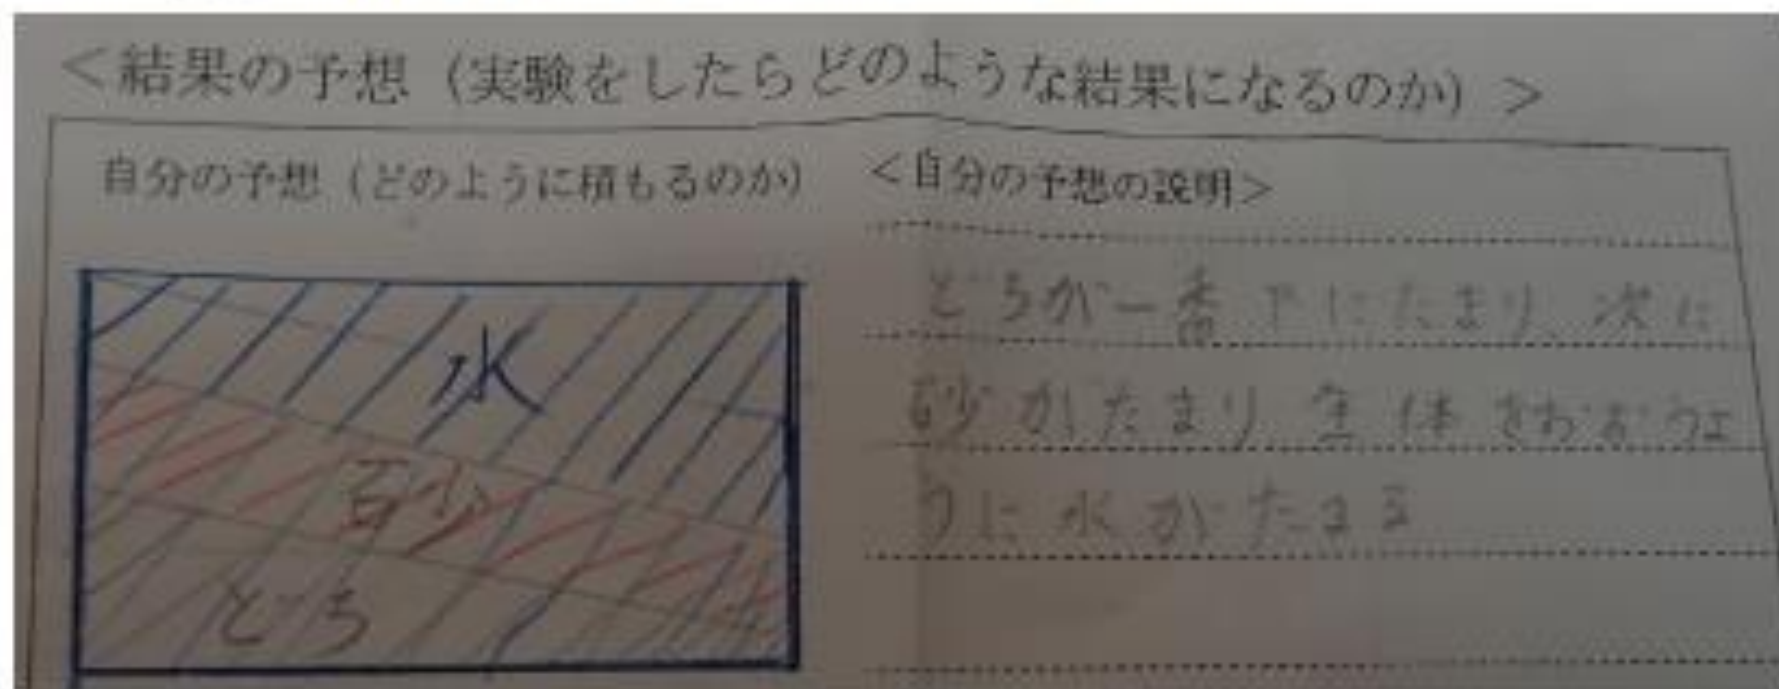 <結果の予想（実験をしたらどのような結果になるのか）>
自分の予想（どのように積もるのか）
<自分の予想の説明>
水
砂
どろ
どろが一番下にたまり、次に
砂がたまり全体をおおうよ
うに水がたまる